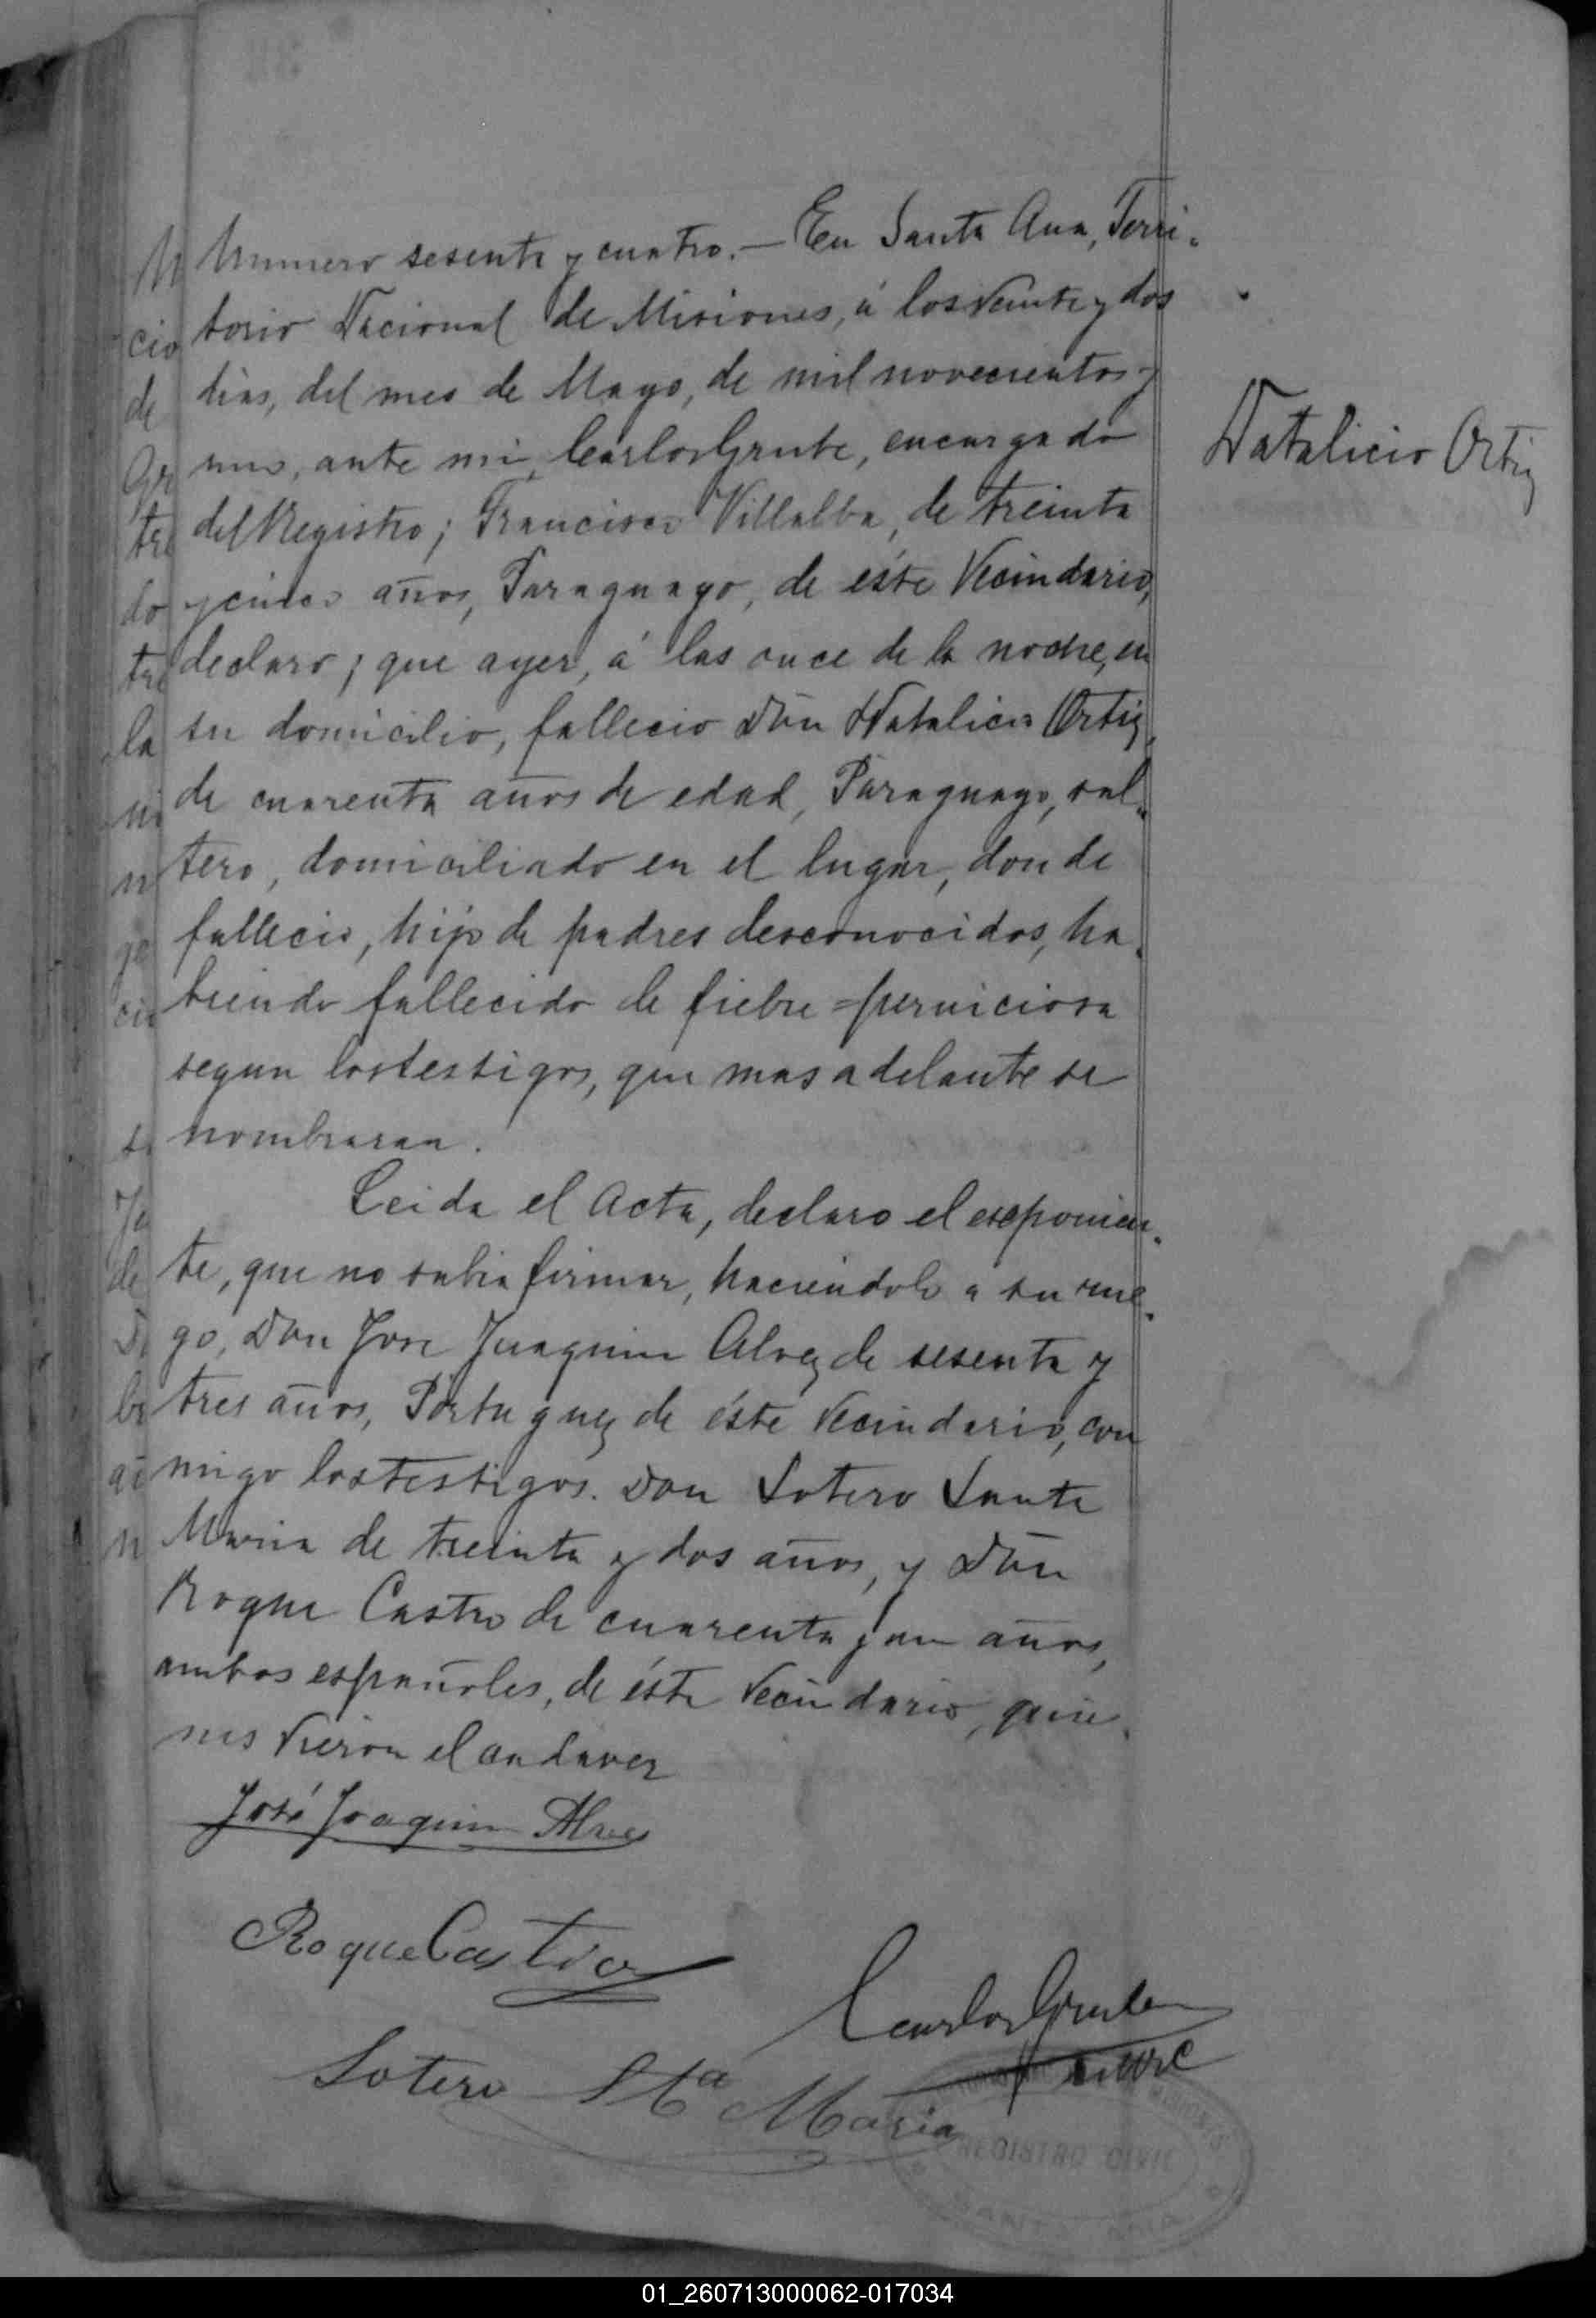 Numero sesenta y cuatro.— En Santa Ana, Terri-
torio Nacional de Misiones, á los veinte y dos
dias, del mes de Mayo, de mil novecientos y
uno, ante mi, Carlos Grube, encargado
del Registro; Francisco Villalba, de treinta
y cinco años, Paraguayo, de éste Vecindario,
declaro; que ayer, á las once de la noche, en
su domicilio, fallecio Don Natalicio Ortiz,
de cuarenta años de edad, Paraguayo, sol-
tero, domiciliado en el lugar, donde
fallecio, hijo de padres desconocidos, ha-
biendo fallecido de fiebre perniciosa
segun los testigos, que mas adelante se
nombraran.
Leida el Acta, declaro el esponien-
te, que no sabia firmar, haciendolo a su rue-
go, Don Jose Juaquim Alvez de sesenta y
tres años, Portuguez de éste Vecindario, con
migo los testigos. Don Sotero Santa
Maria de treinta y dos años, y Don
Roque Castro de cuarenta y un años,
ambos españoles, de ésta Vecindario, quie-
nes vieron el cadaver
Natalicio Ortiz
José Joaquim Alves
Roque Castro
Carlos Grube
Sotero Sta Maria
REGISTRO CIVIL
SANTA ANA
01_260713000062-017034